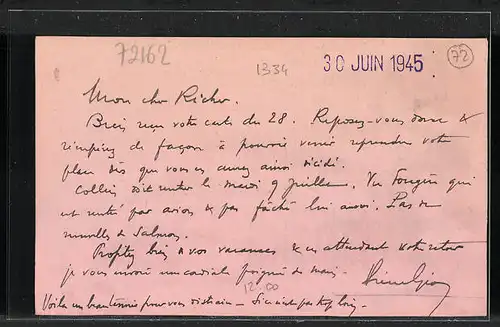 72162
1334
30 JUIN 1945
72
Mon cher Richer.
Bien reçu votre carte du 28. Reposez-vous donc &
de façon à pouvoir venir reprendre votre
place dès que vous en aurez ainsi décidé.
doit rentrer le mardi 9 Juillet. Vu Fougère qui
est rentré par avion & pas fâché lui aussi. Pas de
nouvelles de Salmon.
Profitez bien de vos vacances & en attendant votre retour
je vous envoie une cordiale poignée de main.
12.00
Voilà un pour vous distraire -